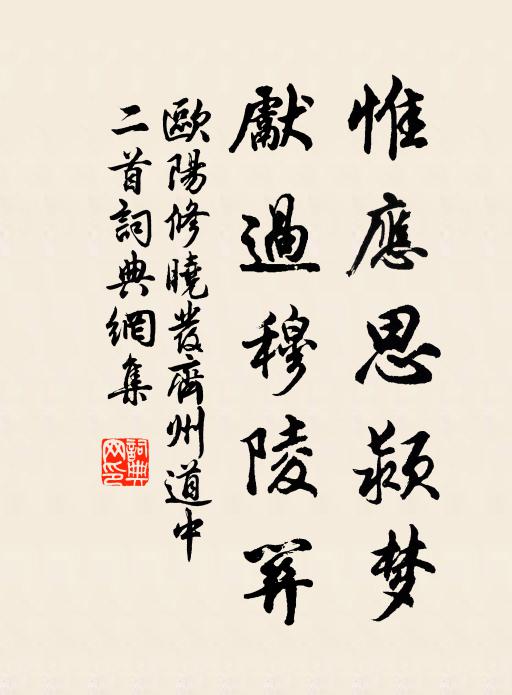 惟應思潁梦
獻過穆陵关
歐陽修曉發齊州道中
二首詞典網集
詞典
网印